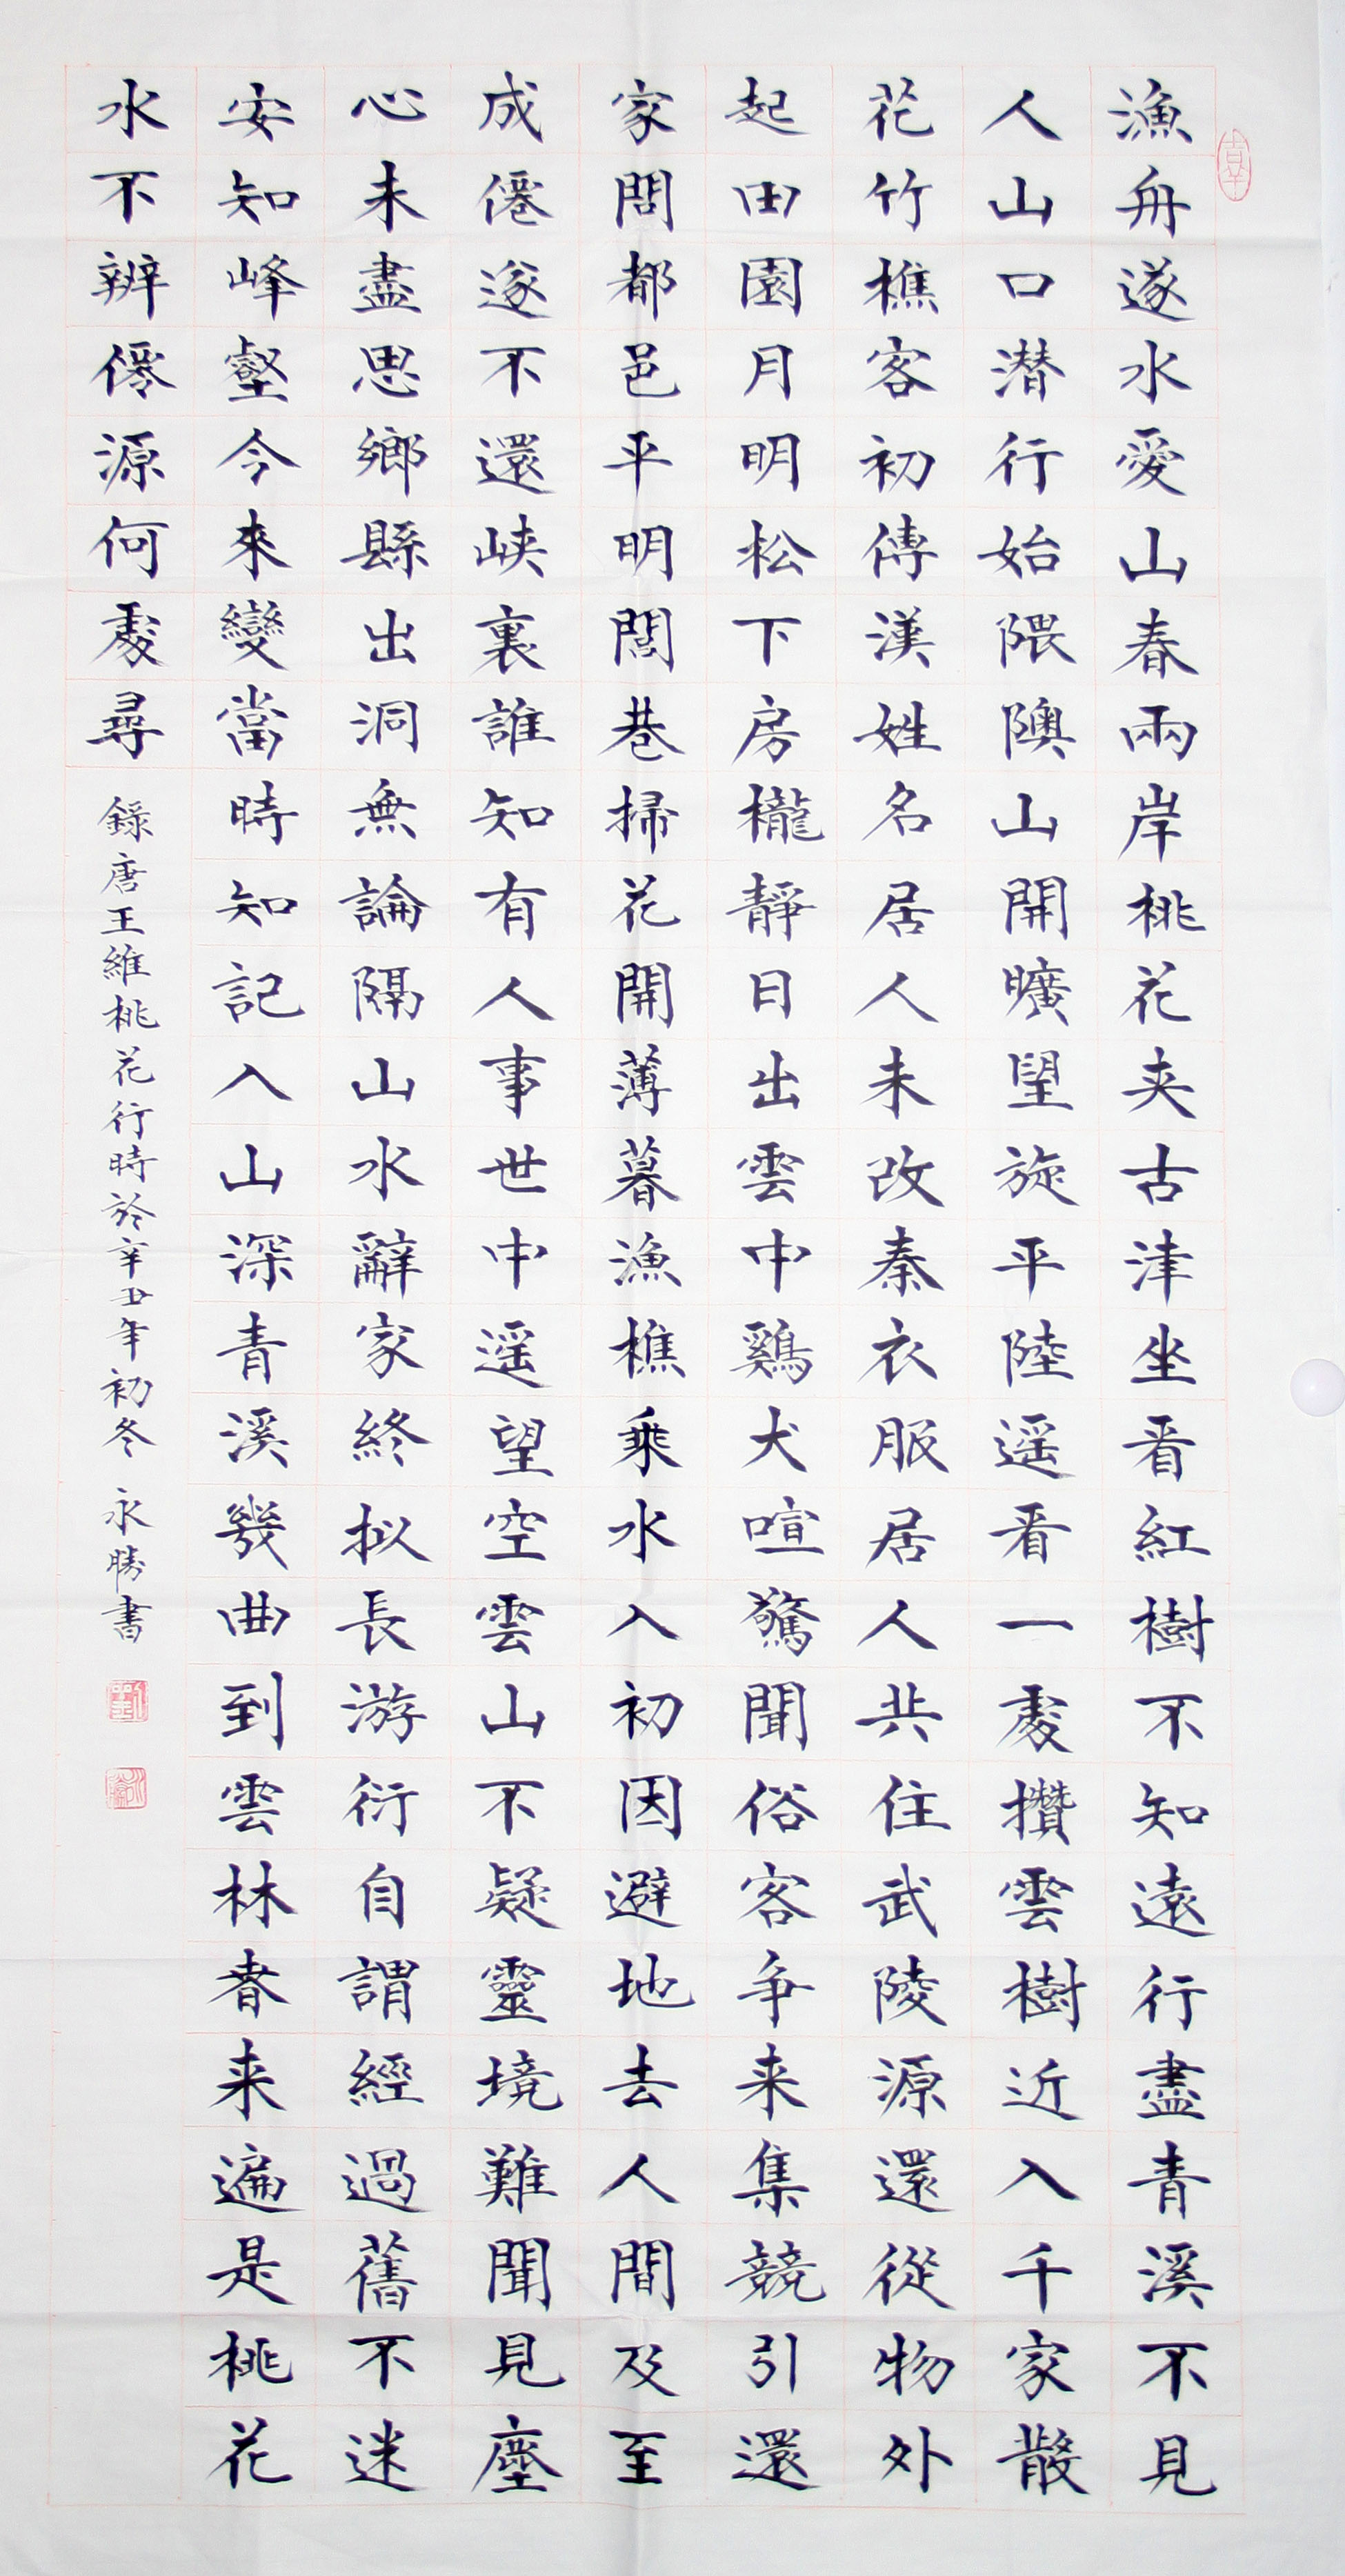 漁舟遂水愛山春兩岸桃花夹古津坐看紅樹不知遠行盡青溪不見
人山口潜行始隈隩山開曠望旋平陸遥看一處攢雲樹近入千家散
花竹樵客初傳漢姓名居人未改秦衣服居人共住武陵源還從物外
起田園月明松下房櫳靜日出雲中鷄犬喧驚聞俗客争来集競引還
家問都邑平明閭巷掃花開薄暮漁樵乘水入初因避地去人間及至
成僊遂不還峡裏誰知有人事世中遥望空雲山不疑靈境難聞見塵
心未盡思鄉縣出洞無論隔山水辭家終拟長游衍自謂經過舊不迷
安知峰壑今來變當時知記入山深青溪幾曲到雲林春来遍是桃花
水不辨僊源何處尋
錄唐王維桃花行時於辛丑年初冬 永勝書